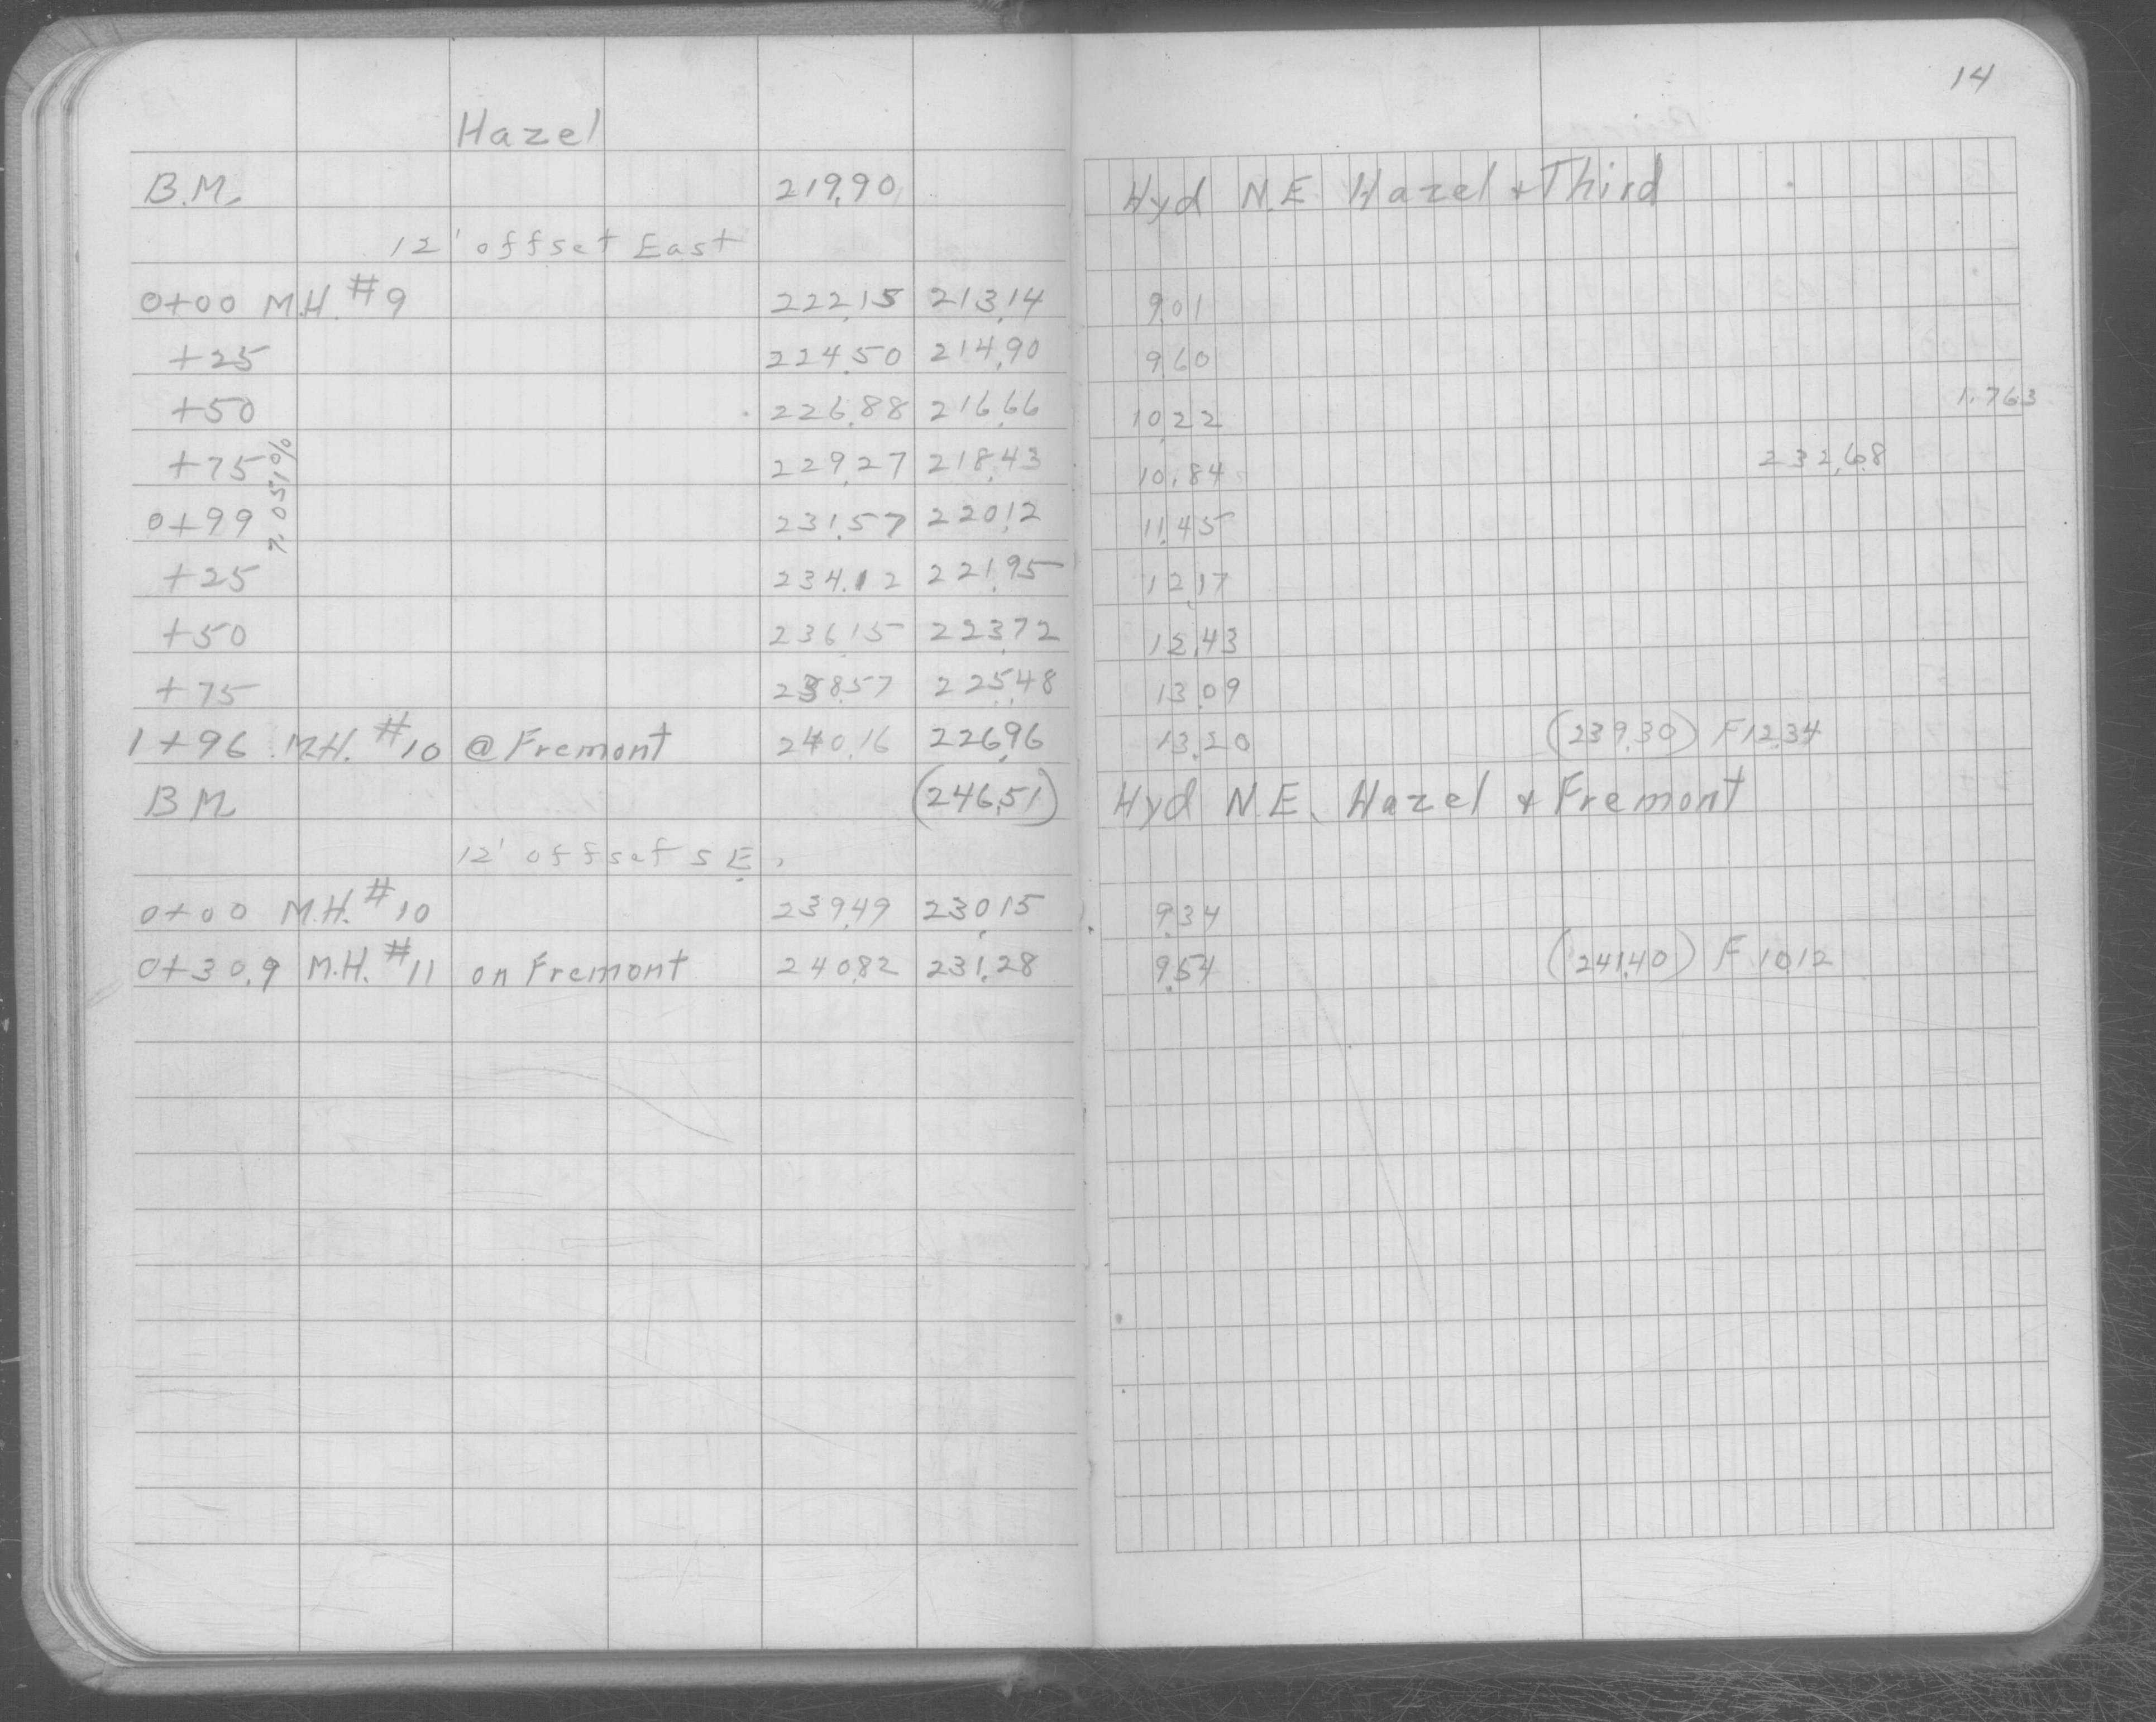 14
Hazel
B.M. 219.90 Hyd N.E. Hazel + Third
12' offset East
0+00 M.H. #9 222.15 213.14 9.01
+25 224.50 214.90 9.60
+50 226.88 216.66 10.22 1.763
+75 229.27 218.43 10.84 232.68
7.051%
0+99 231.57 220.12 11.45
+25 234.12 221.95 12.17
+50 236.15 223.72 12.43
+75 238.57 225.48 13.09
1+96 M.H. #10 @ Fremont 240.16 226.96 13.20 (239.30) F 12.34
B M (246.51) Hyd N.E. Hazel + Fremont
12' offset S E.
0+00 M.H. #10 239.49 230.15 9.34
0+30.9 M.H. #11 on Fremont 240.82 231.28 9.54 (241.40) F 10.12